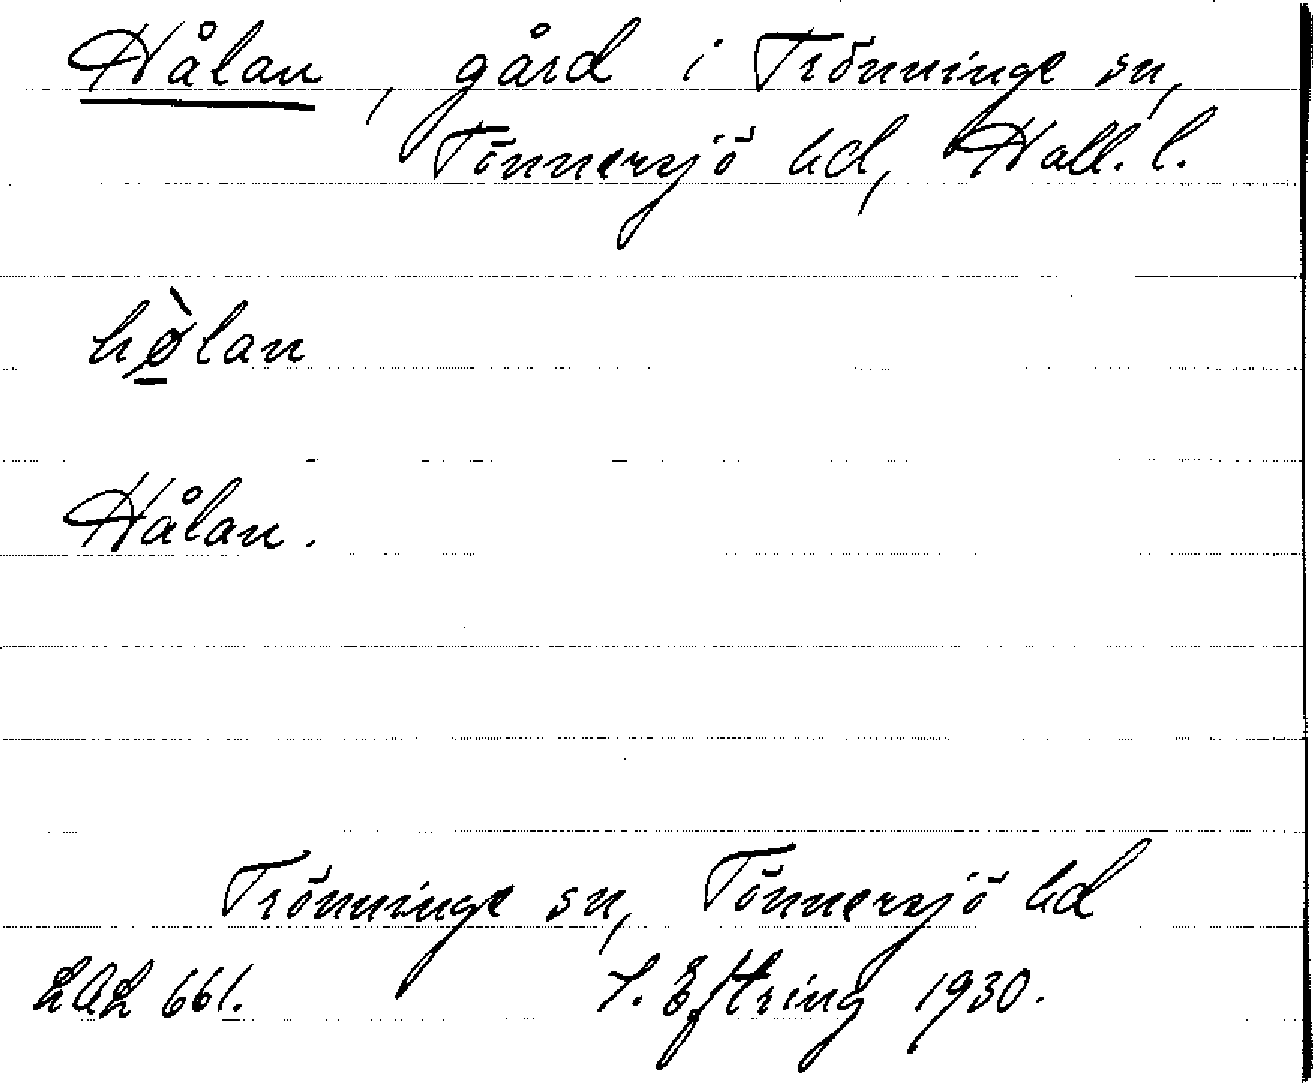 Hålan, gård i Trönninge sn,
Tönnersjö hd, Hall. l.
hø̱̀lan
Hålan.
Trönninge sn, Tönnersjö hd
LAL 661. J. Eftring 1930.